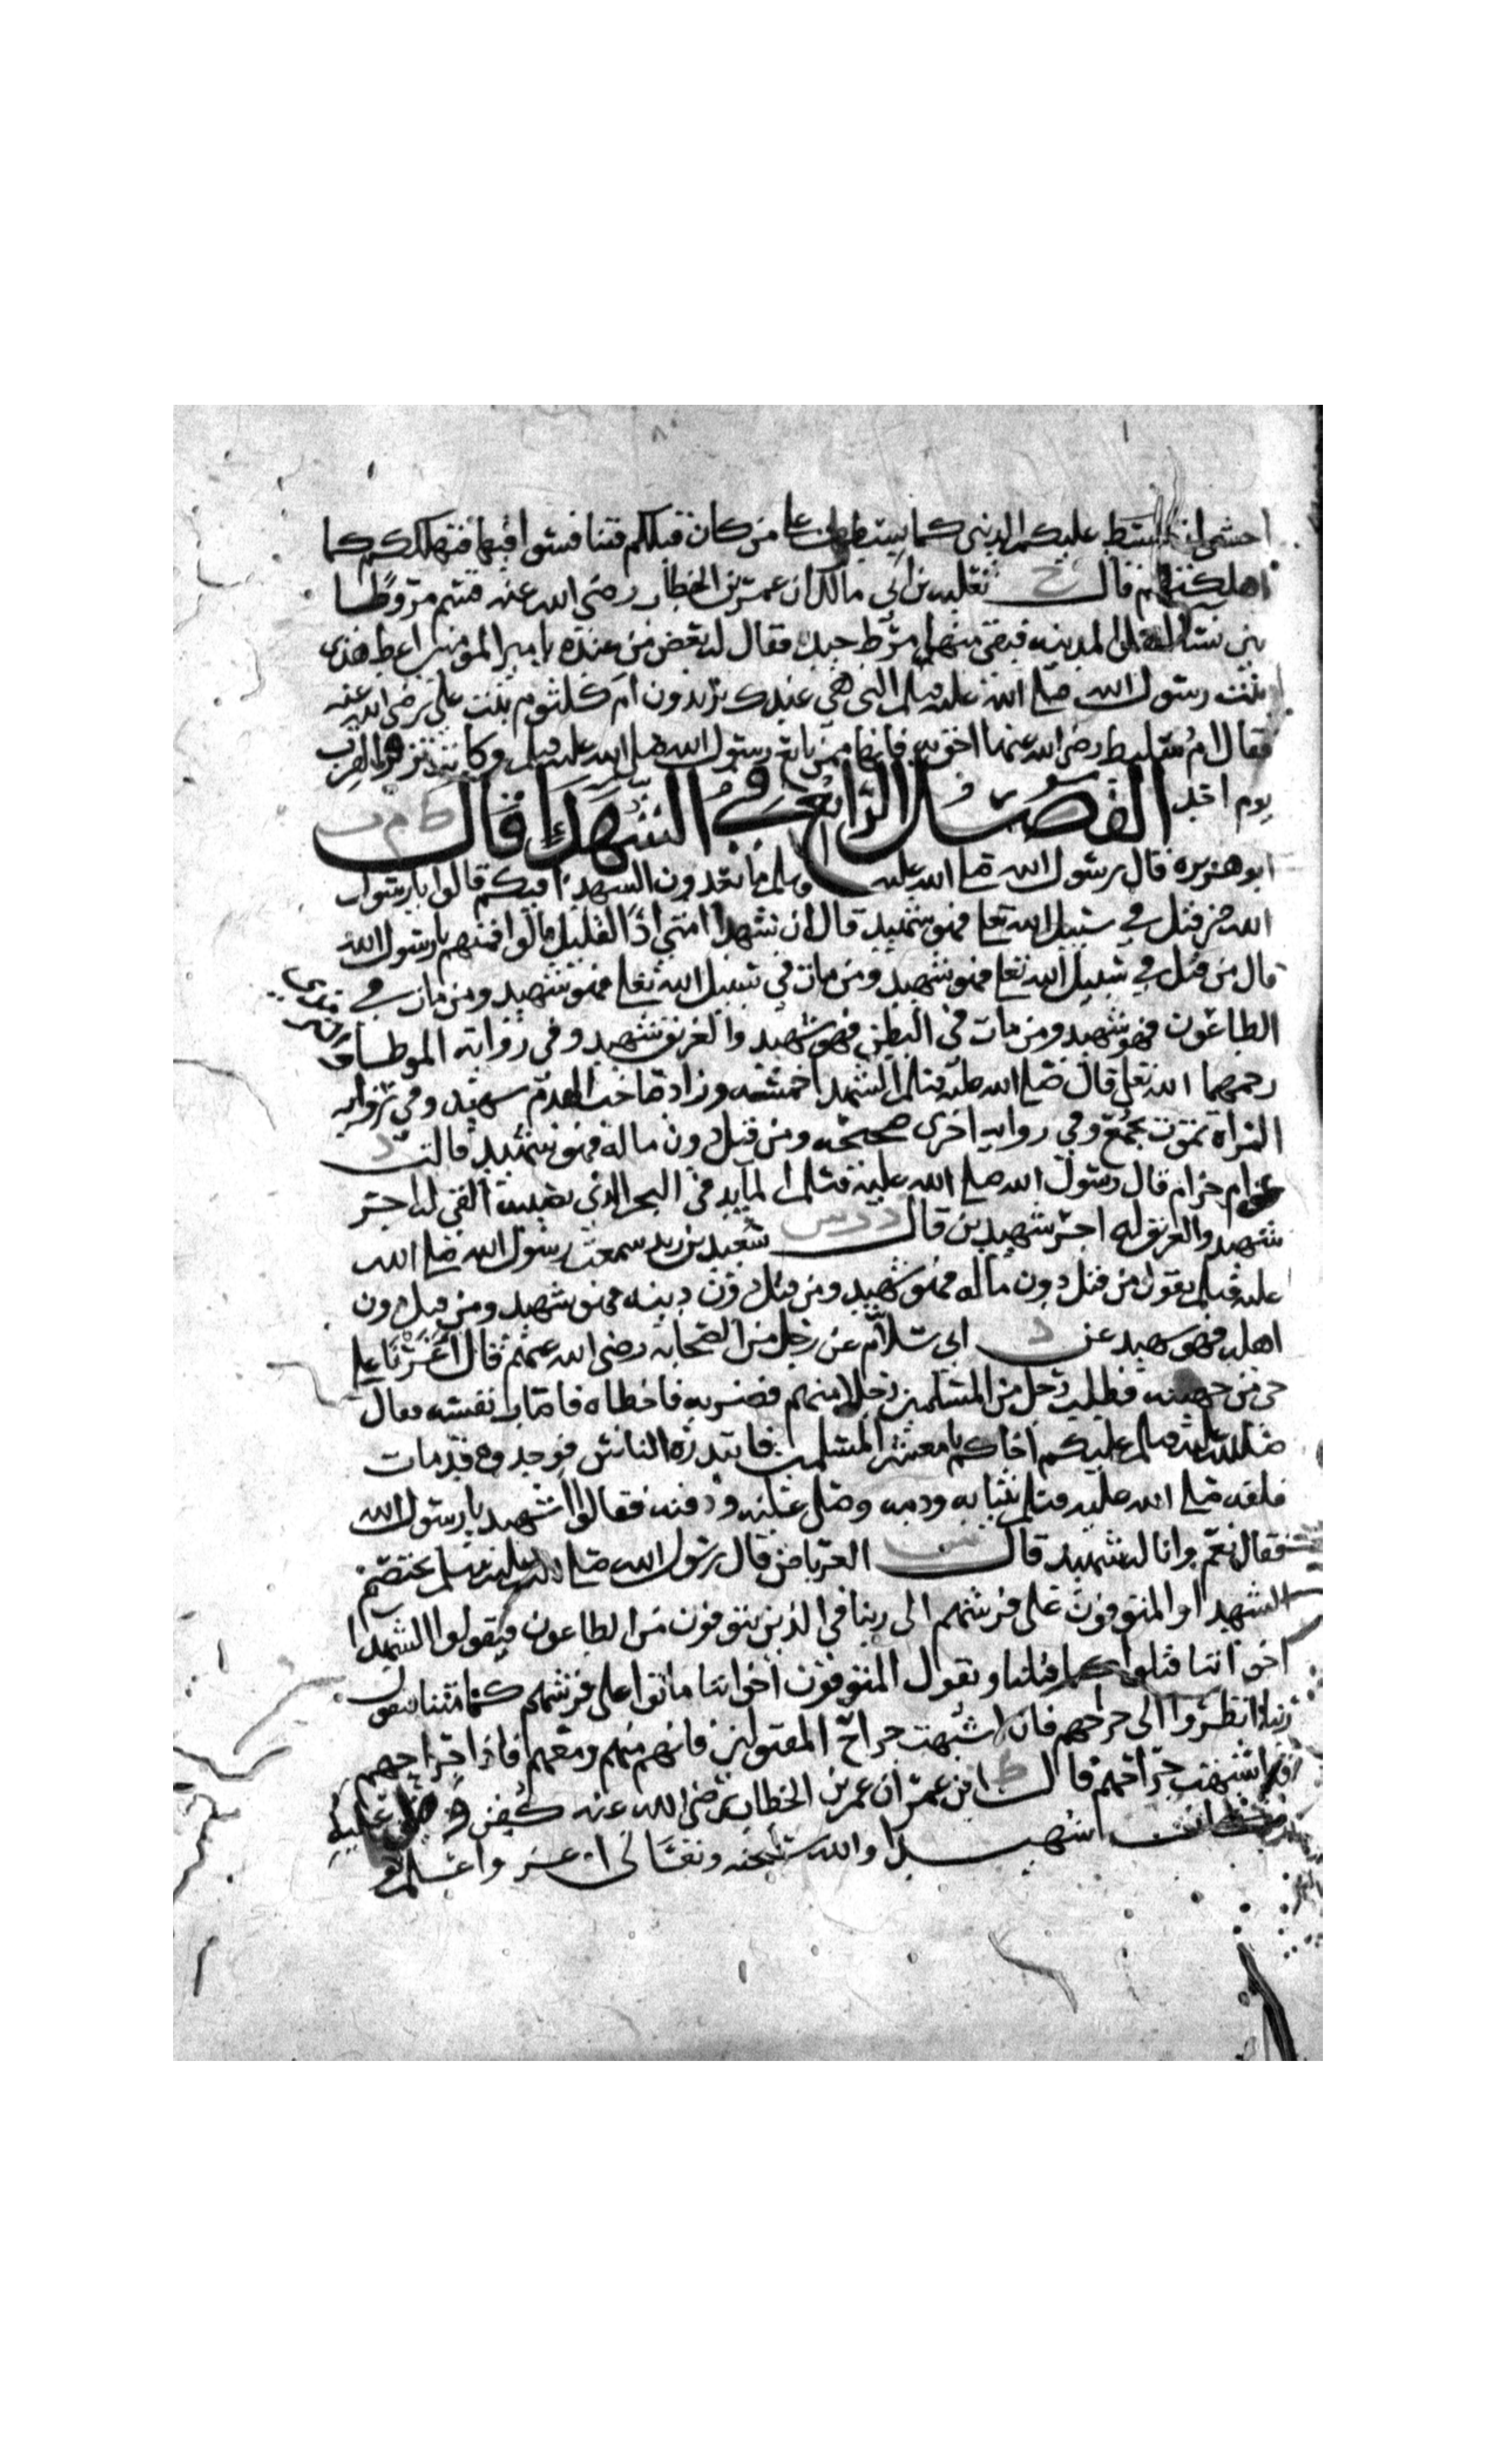 اخشى ان تبسط عليكم الدنيا كما بسطت على من كان قبلكم فتنافسوا فيها فتهلككم كما
اهلكتهم قال خ ثعلبه بن ابي مالك ان عمر بن الخطاب رضي الله عنه قسم مروطا
بين نساء اهل المدينه فبقي منها مرط جيد فقال له بعض من عنده يا امير المومنين اعط هذا
بنت رسول الله صلى الله عليه وسلم التي هي عندك يريدون ام كلثوم بنت علي رضي الله عنه
فقال ام سليط رضي الله عنها احق به فانها ممن بايع رسول الله صلى الله عليه وسلم وكانت تزفر لنا القرب
يوم احد الفصل الرابع في الشهداء قال ط م ت
ابو هريره قال رسول الله صلى الله عليه وسلم ما تعدون الشهداء فيكم قالوا يا رسول
الله من قتل في سبيل الله تعالى فهو شهيد قال ان شهداء امتي اذا لقليل قالوا فمنهم يا رسول الله
قال من قتل في سبيل الله تعالى فهو شهيد ومن مات في سبيل الله تعالى فهو شهيد ومن مات في
الطاعون فهو شهيد ومن مات في البطن فهو شهيد والغريق شهيد وفي روايه الموطا والترمذي
رحمهما الله تعالى قال صلى الله عليه وسلم الشهداء خمسه وزاد صاحب الهدم شهيد وفي روايه
المراة تموت بجمع وفي روايه اخرى صحيحه ومن قتل دون ماله فهو شهيد قالت د
ام حرام قال رسول الله صلى الله عليه وسلم المايد في البحر الذي يصيبه القي له اجر
شهيد والغريق له اجر شهيدين قال د ت س سعيد بن زيد سمعت رسول الله صلى الله
عليه وسلم يقول من قتل دون ماله فهو شهيد ومن قتل دون دينه فهو شهيد ومن قتل دون
اهله فهو شهيد عن د ابي سلام عن رجل من الصحابه رضي الله عنهم قال اغرنا على
حي من جهينه فطلب رجل من المسلمين رجلا منهم فضربه فاخطاه فاصاب نفسه فقال
صلى الله عليه وسلم عليكم اخاكم يا معشر المسلمين فابتدره الناس فوجدوه قد مات
فلفه صلى الله عليه وسلم بثيابه ودمه وصلى عليه ودفنه فقالوا اشهيد يا رسول الله
فقال نعم وانا له شهيد قال س العرباض قال رسول الله صلى الله عليه وسلم يختصم
الشهداء والمتوفون على فرشهم الى ربنا في الذين يتوفون من الطاعون فيقولوا الشهدا
اخواننا قتلوا كما قتلنا ويقول المتوفون اخواننا ماتوا على فرشهم كما متنا فيقول
ربنا انظروا الى جراحهم فان اشبهت جراح المقتولين فانهم منهم ومعهم فاذا جراحهم
قد اشبهت جراحهم قال ط ابن عمر ان عمر بن الخطاب رضي الله عنه كفن وصلي عليه
شهيدا والله سبحنه وتعالى اعز واعلم